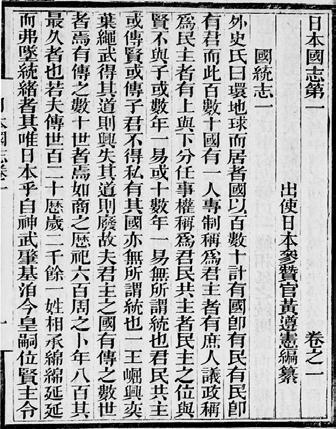 日本國志第一 卷之一
出使日本參贊官黃遵憲編纂
國統志一
外史氏曰環地球而居者國以百數十計有國卽有民有民卽
有君而此百數十國有一人專制稱爲君主者有庶人議政稱
爲民主者有上與下分任事權稱爲君民共主者民主之位與
賢不與子或數年一易或十數年一易無所謂統也君民共主
或傳賢或傳子君不得私有其國亦無所謂統也一王崛興奕
葉繩武得其道則興失其道則廢故夫君主之國有傳之數世
者焉有傳之數十世者焉如商之歷祀六百周之卜年八百其
最久者也若夫傳世百二十歷歲二千餘一姓相承綿綿延延
而弗墜統緒者其唯日本乎自神武肇基洎今皇嗣位賢主令